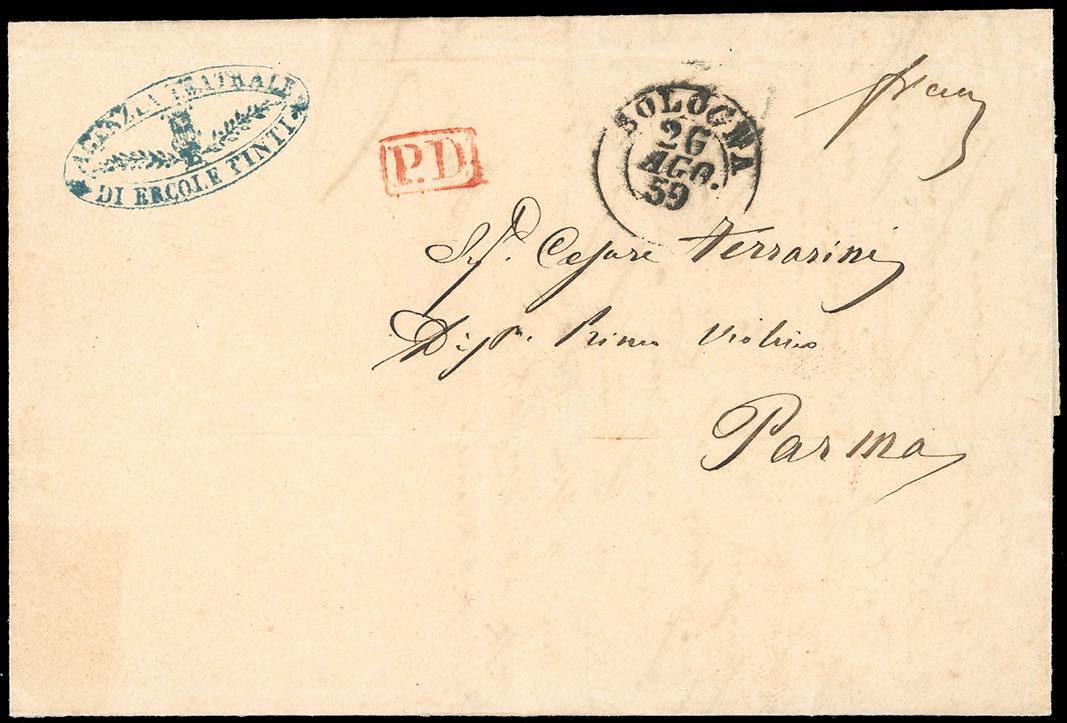 AGENZIA TEATRALE
DI ERCOLE TINTI
P.D.
BOLOGNA
26
AGO.
59
Sigr. Cesare Ferrarini
Primo Violino
Parma